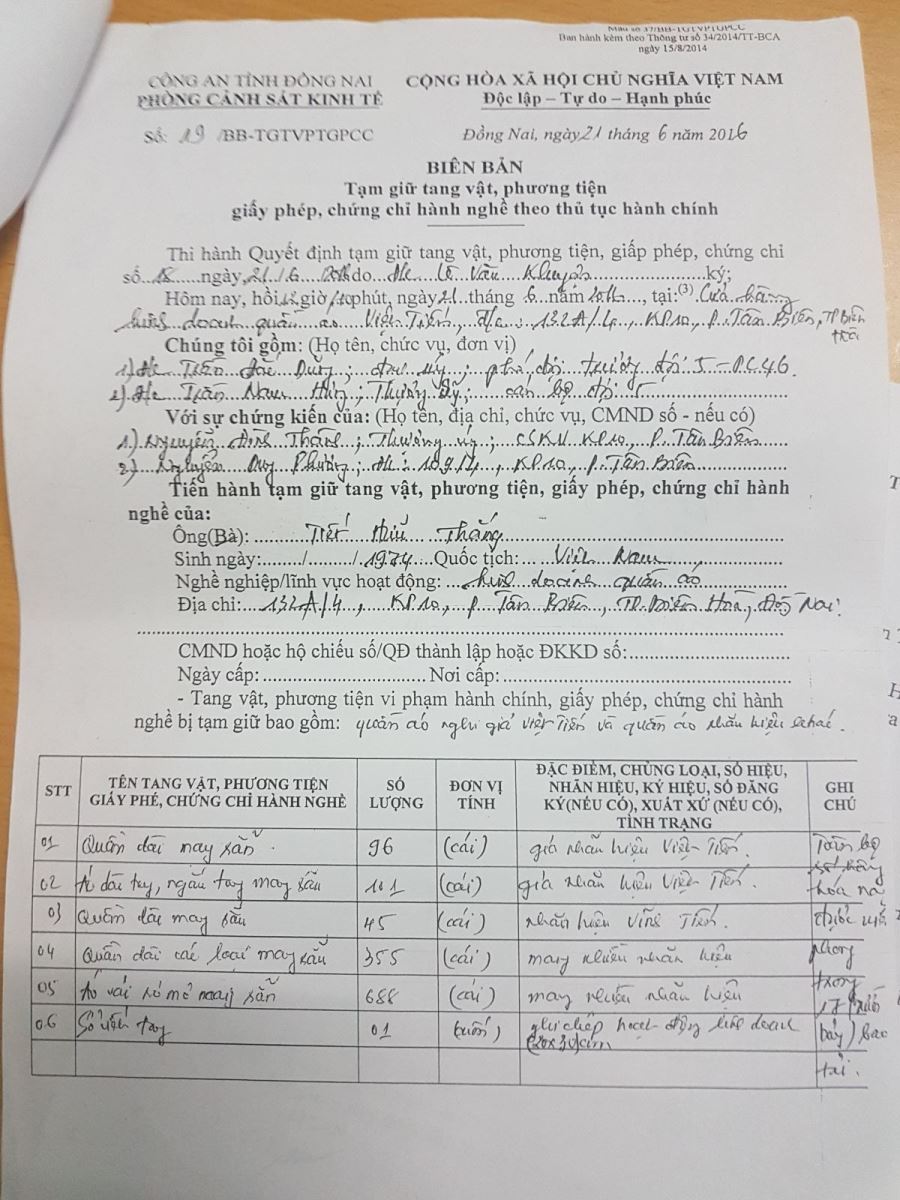 Ban hành kèm theo Thông tư số 34/2014/TT-BCA
ngày 15/8/2014
CÔNG AN TỈNH ĐỒNG NAI
PHÒNG CẢNH SÁT KINH TẾ
CỘNG HÒA XÃ HỘI CHỦ NGHĨA VIỆT NAM
Độc lập – Tự do – Hạnh phúc
Số: 19 /BB-TGTVPTGPCC
Đồng Nai, ngày 21 tháng 6 năm 2016
BIÊN BẢN
Tạm giữ tang vật, phương tiện
giấy phép, chứng chỉ hành nghề theo thủ tục hành chính
Thi hành Quyết định tạm giữ tang vật, phương tiện, giấp phép, chứng chỉ
số 18 ngày 21/6 do Văn ký;
Hôm nay, hồi giờ phút, ngày 21 tháng 6 năm tại: (3) Cửa hàng
doanh quần áo Việt Tiến, đ/c: 132A/4, KP10, P. Tân Biên, TP Biên
Hòa
Chúng tôi gồm: (Họ tên, chức vụ, đơn vị)
1) Đ/c Trần Đắc Dũng; đại úy; phó đội trưởng đội 5 - PC46.
2) Đ/c Trần Nam Hưng; Thượng sỹ; cán bộ đội 5
Với sự chứng kiến của: (Họ tên, địa chỉ, chức vụ, CMND số - nếu có)
1) Nguyễn Đình Thắng; Thượng úy; CSKV KP10, P. Tân Biên
2) Nguyễn Duy Phương; đ/c: 109/4, KP10, P. Tân Biên
Tiến hành tạm giữ tang vật, phương tiện, giấy phép, chứng chỉ hành
nghề của:
Ông(Bà): Hữu Thắng
Sinh ngày: / / 1974 Quốc tịch: Việt Nam
Nghề nghiệp/lĩnh vực hoạt động: kinh doanh quần áo
Địa chỉ: 132A/4, KP10, P. Tân Biên, TP. Biên Hoà, Đồng Nai.
CMND hoặc hộ chiếu số/QĐ thành lập hoặc ĐKKD số:
Ngày cấp: Nơi cấp:
- Tang vật, phương tiện vi phạm hành chính, giấy phép, chứng chỉ hành
nghề bị tạm giữ bao gồm: quần áo nghi giả Việt Tiến và quần áo nhãn hiệu khác.
STT TÊN TANG VẬT, PHƯƠNG TIỆN GIẤY PHÉ, CHỨNG CHỈ HÀNH NGHỀ SỐ LƯỢNG ĐƠN VỊ TÍNH ĐẶC ĐIỂM, CHỦNG LOẠI, SỐ HIỆU, NHÃN HIỆU, KÝ HIỆU, SỐ ĐĂNG KÝ(NẾU CÓ), XUẤT XỨ (NẾU CÓ), TÌNH TRẠNG GHI CHÚ
01 Quần dài may sẵn. 96 (cái) giả nhãn hiệu Việt Tiến. Toàn bộ
02 Áo dài tay, ngắn tay may sẵn 101 (cái) giả nhãn hiệu Việt Tiến. số hàng hóa
03 Quần dài may sẵn 45 (cái) nhãn hiệu Tiến. được
04 Quần dài các loại may sẵn 355 (cái) mang nhiều nhãn hiệu phong
05 Áo vải sơ mi may sẵn 688 (cái) mang nhiều nhãn hiệu trong
06 Sổ viết tay 01 (cuốn) ghi chép hoạt động kinh doanh (20x30)cm 17 bao
tải.